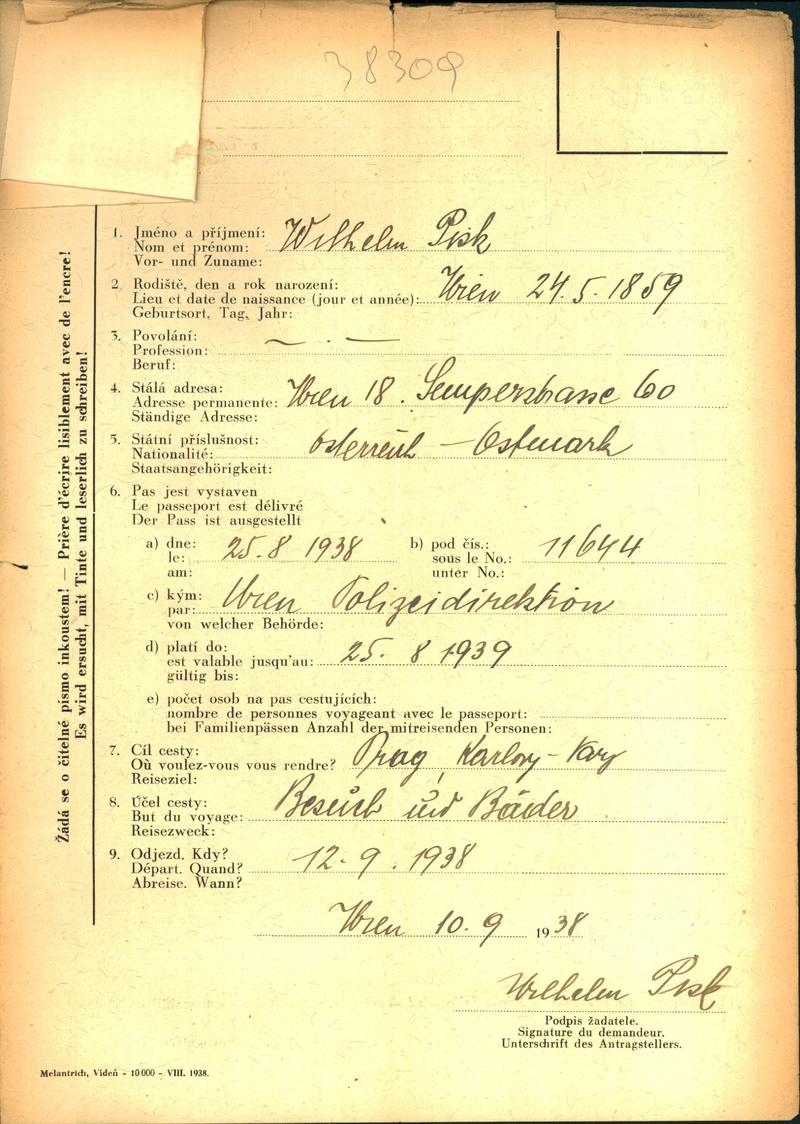 38309
1. Jméno a příjmení:
Nom et prénom: Wilhelm Pisk
Vor- und Zuname:
2. Rodiště, den a rok narození:
Lieu et date de naissance (jour et année): Wien 24.5.1859
Geburtsort, Tag, Jahr:
3. Povolání:
Profession: — . —
Beruf:
4. Stálá adresa:
Adresse permanente: Wien 18. Semperstrasse 60
Ständige Adresse:
5. Státní příslušnost:
Nationalité: Österreich — Ostmark
Staatsangehörigkeit:
6. Pas jest vystaven
Le passeport est délivré
Der Pass ist ausgestellt
a) dne: b) pod čís.:
le: 25.8 1938 sous le No.: 11644
am: unter No.:
c) kým:
par: Wien Polizeidirektion
von welcher Behörde:
d) platí do:
est valable jusqu'au: 25. 8 1939
gültig bis:
e) počet osob na pas cestujících:
nombre de personnes voyageant avec le passeport:
bei Familienpässen Anzahl der mitreisenden Personen:
7. Cíl cesty:
Où voulez-vous vous rendre? Prag, Karlovy-Vary
Reiseziel:
8. Účel cesty:
But du voyage: Besuch und Bäder
Reisezweck:
9. Odjezd. Kdy?
Départ. Quand? 12.9.1938
Abreise. Wann?
Wien 10.9 1938
Wilhelm Pisk
Podpis žadatele.
Signature du demandeur.
Unterschrift des Antragstellers.
Melantrich, Vídeň - 10000 - VIII. 1938.
Žádá se o čitelné písmo inkoustem! — Prière d'écrire lisiblement avec de l'encre!
Es wird ersucht, mit Tinte und leserlich zu schreiben!